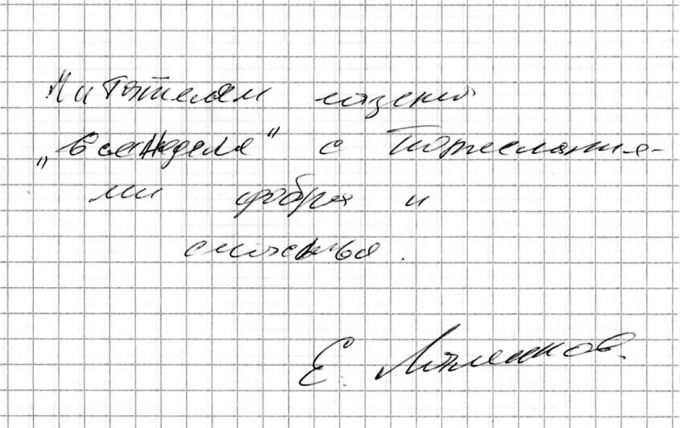 Читателям газеты
"Вся неделя" с пожелания-
ми добра и
счастья.
Е.